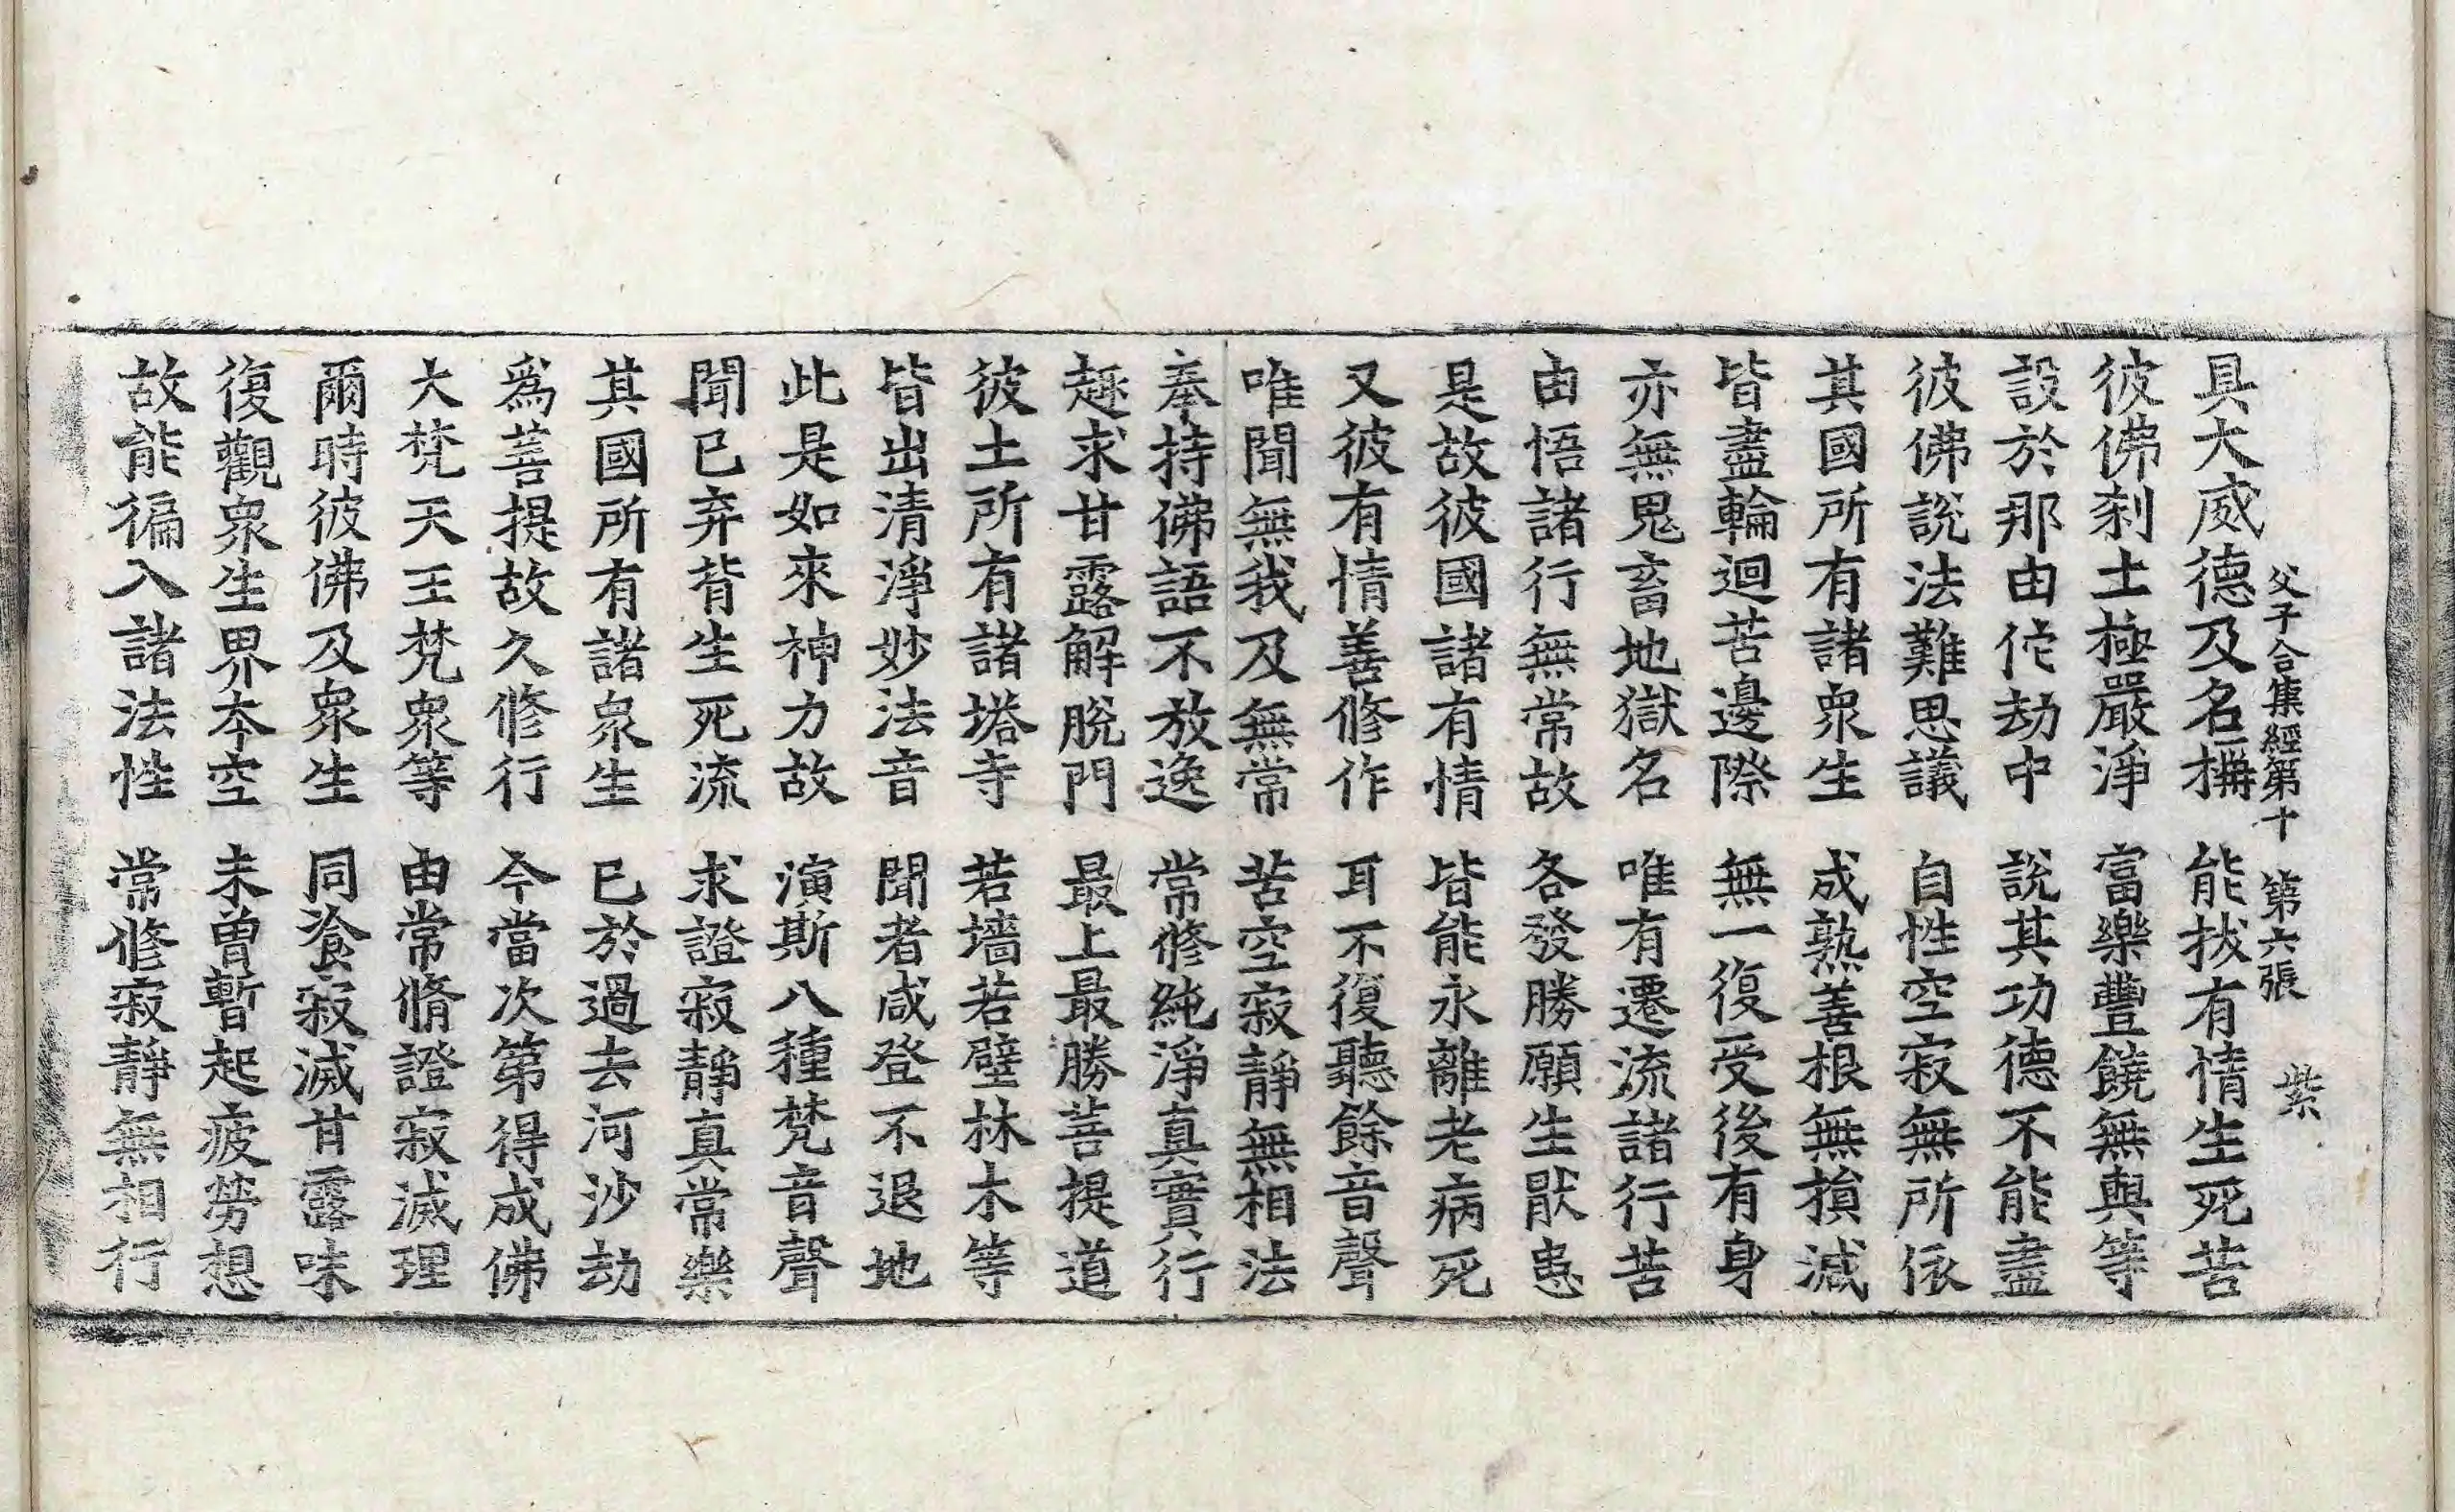 父子合集經第十　第六張　紫
具大威德及名稱　能拔有情生死苦
彼佛剎土極嚴淨　富樂豐饒無與等
設於那由佗劫中　說其功德不能盡
彼佛說法難思議　自性空寂無所依
其國所有諸衆生　成熟善根無損減
皆盡輪迴苦邊際　無一復受後有身
亦無鬼畜地獄名　唯有遷流諸行苦
由悟諸行無常故　各發勝願生猒患
是故彼國諸有情　皆能永離老病死
又彼有情善修作　耳不復聽餘音聲
唯聞無我及無常　苦空寂靜無相法
奉持佛語不放逸　常修純淨真實行
趣求甘露解脫門　最上最勝菩提道
彼土所有諸塔寺　若墻若壁林木等
皆出清淨妙法音　聞者咸登不退地
此是如來神力故　演斯八種梵音聲
聞已弃背生死流　求證寂靜真常樂
其國所有諸衆生　已於過去河沙劫
爲菩提故久修行　今當次第得成佛
大梵天王梵衆等　由常脩證寂滅理
爾時彼佛及衆生　同飡寂滅甘露味
復觀衆生界本空　未曾暫起疲勞想
故能徧入諸法性　常修寂靜無相行